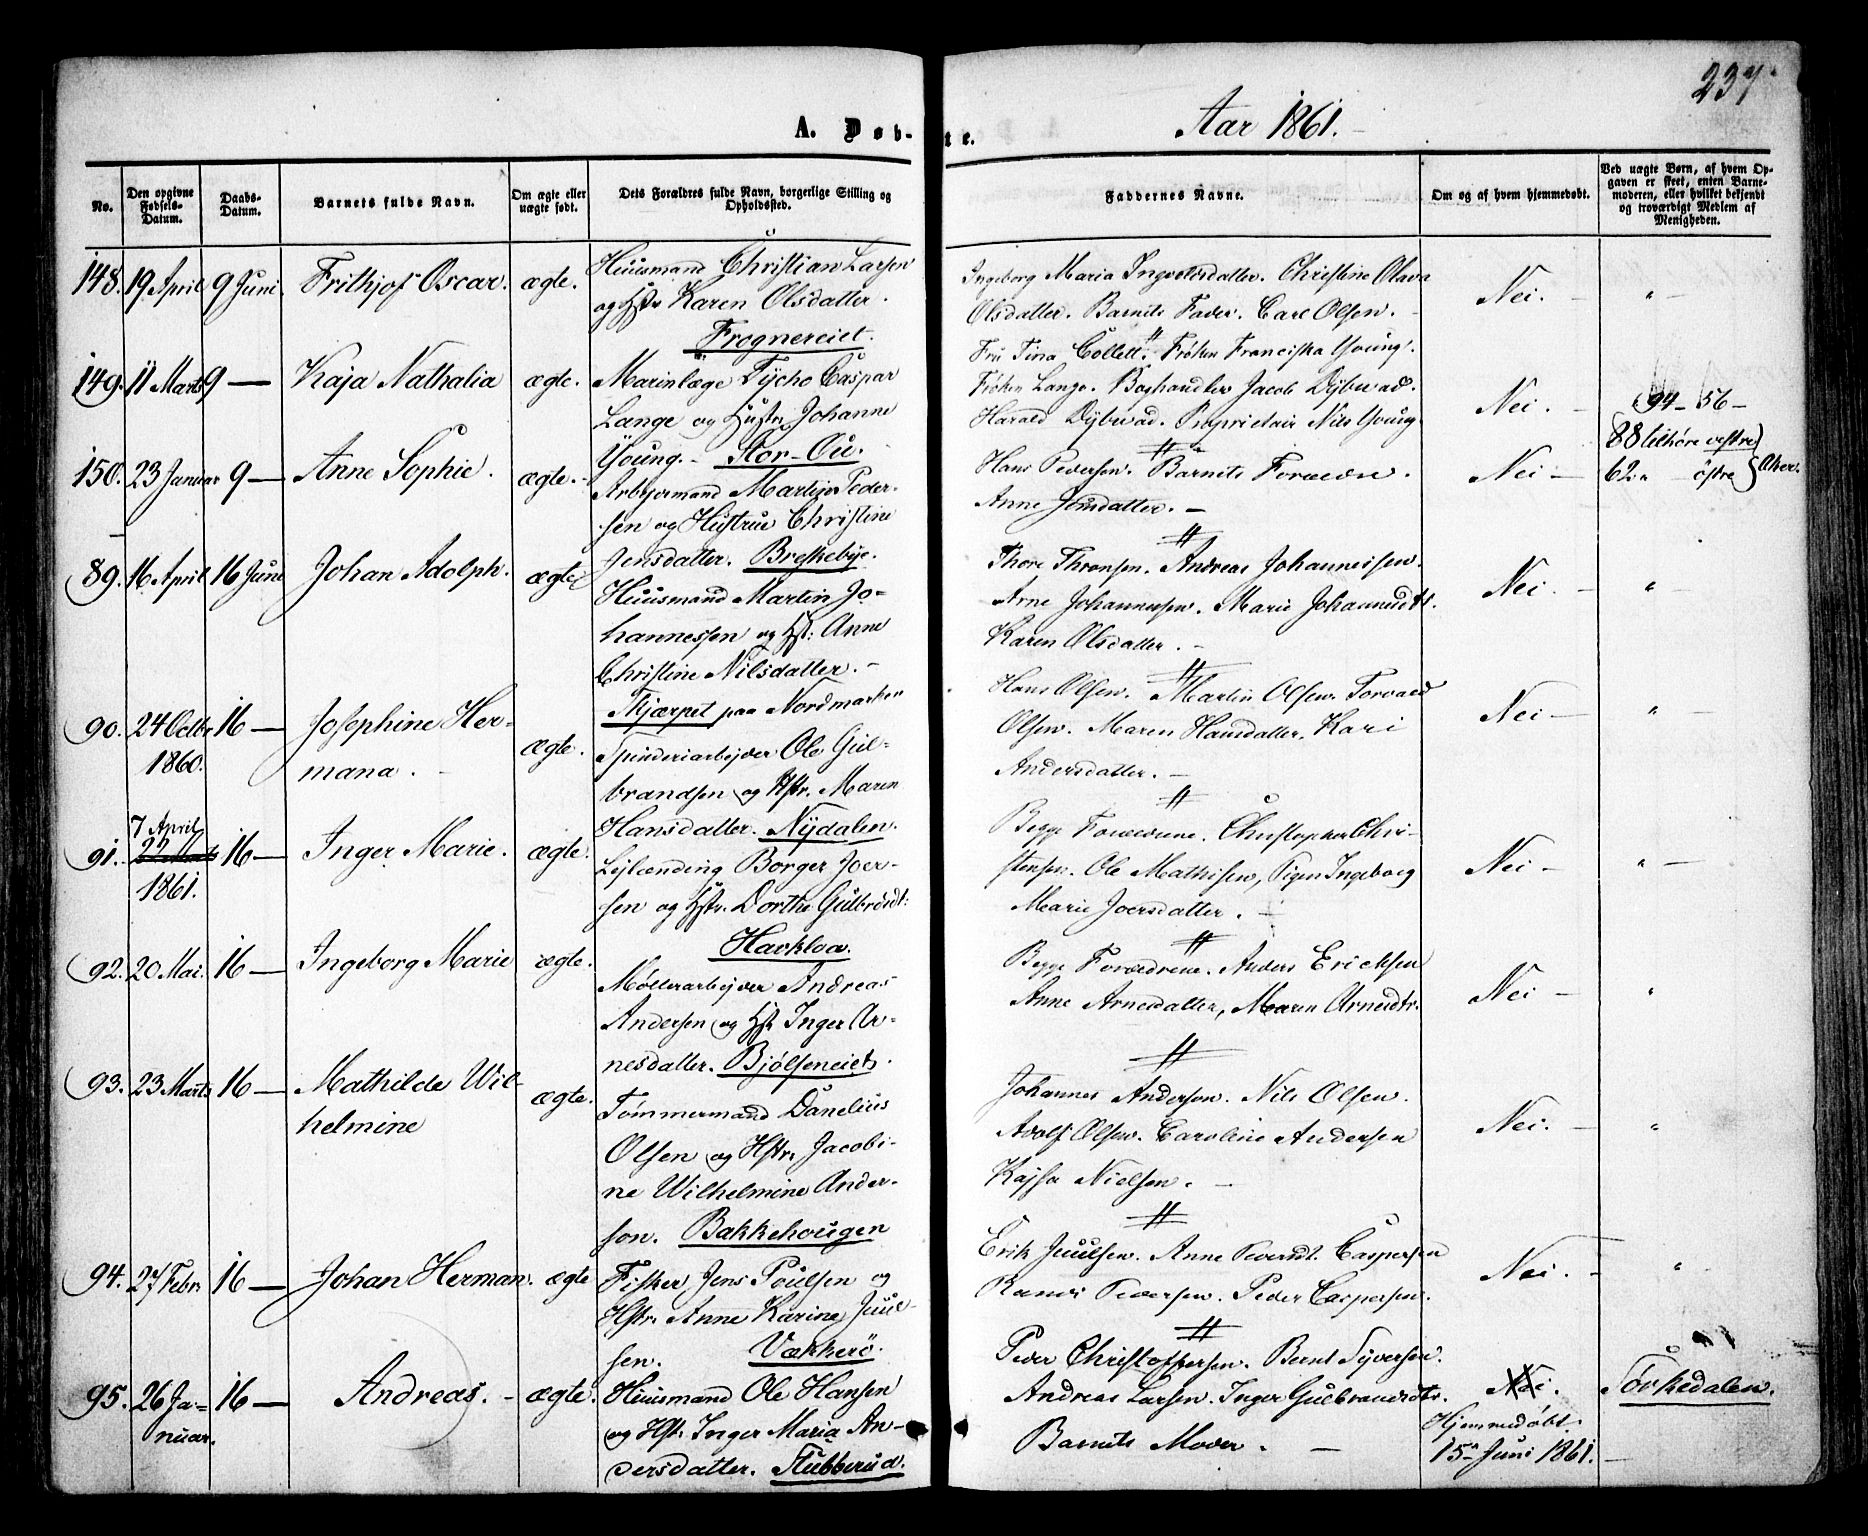 237
A. Døb-
te.
Aar 1861.
No.
Den opgivne Fødsels-Datum.
Daabs-Datum.
Barnets fulde Navn.
Om ægte eller uægte født.
Dets Forældres fulde Navn, borgerlige Stilling og Opholdssted.
Faddernes Navne.
Om og af hvem hjemmedøbt.
Ved uægte Børn, af hvem Opgaven er skeet, enten Barnemoderen, eller hvilket bekjendt og troværdigt Medlem af Menigheden.
148. 19 April 9 Juni. Frithjof Oscar. ægte.
Huusmand Christian Larsen
og Hstr Karen Olsdatter.
Frognereiet.
Ingeborg Maria Ingvoldsdatter. Christine Olava
Olsdatter. Barnets Fader. Carl Olsen.
Nei. — " —
149. 11 Marts 9 — Kaja Nathalia ægte.
Marinlæge Tycho Caspar
Lange og Hustr. Johanne
Young. — Stor-Ou.
Fru Tina Collett. Frøken Franciska Young.
Frøken Lange. Boghandler Jacob Dybwad.
Harald Dybwad. Proprietair Nils Young
Nei. —
94 — 56 —
88 tilhøre vestre
62 " — östre } Aker.
150. 23 Januar 9 — Anne Sophie. ægte.
Arbejdsmand Martin Peder-
sen og Hustrue Christine
Jensdatter. Breskebye.
Hans Pedersen. Barnets Forældre.
Anne Jensdatter. —
Nei —
89. 16 April 16 Juni Johan Adolph. ægte
Huusmand Martin Jo-
hannessen og Hst: Anne
Christine Nilsdatter. —
Kjærpet paa Nordmarken
Thore Thronsen. Andreas Johannessen.
Arne Johannessen. Marie Johannesdtr.
Karen Olsdatter. —
Nei. — " —
90. 24 Octbr 1860. 16 — Josephine Her-
mana. — ægte.
Spinderiarbejder Ole Gul-
brandsen og Hstr. Maren
Hansdatter. Nydalen.
Hans Olsen. Martin Olsen. Torvald
Olsen. Maren Hansdatter. Kari
Andersdatter. —
Nei — " —
91. 7 April 1861. 16 — Inger Marie. ægte.
Lejlænding Borger Joer-
sen og Hstr. Dorthe Gulbrsdt:
Havkloa.
Begge Forældrene. Christopher Chri-
stensen. Ole Mathisen, Pigen Ingeborg
Marie Joersdatter. —
Nei — " —
92. 20 Mai. 16 — Ingeborg Marie ægte.
Møllerarbejder Andreas
Andersen og Hst. Inger Ar-
nesdatter. Bjølseneiet.
Begge Forældrene. Anders Ericksen
Anne Arnesdatter, Maren Arnesdtr.
Nei — "
93. 23 Marts 16 — Mathilde Wil-
helmine ægte.
Tømmermand Danelius
Olsen og Hstr. Jacobi-
ne Wilhelmine Ander-
son. Bakkehougen
Johannes Andersen. Nils Olsen.
Adolf Olsen. Caroline Andersen
Kajsa Nielsen. —
Nei. — "
94. 27 Febr. 16 — Johan Herman. ægte
Fisker Jens Poulsen og
Hstr. Anne Karine Juul-
sen. Vækkerö.
Erik Juulsen. Anne Pedersdt. Caspersen
Randi Pedersen. Peder Caspersen.
Nei. — "
95. 26 Ja-
nuar. 16 — Andreas. — ægte.
Huusmand Ole Hansen
og Hst. Inger Maria An-
dersdatter. Stubberud.
Peder Christoffersen. Bernt Syversen.
Andreas Larsen. Inger Gulbrandsdtr.
Barnets Moder. —
Nei.
Hjemmedøbt
15de Juni 1861. —
Sörkedalen.